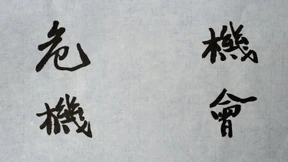 危機
機會